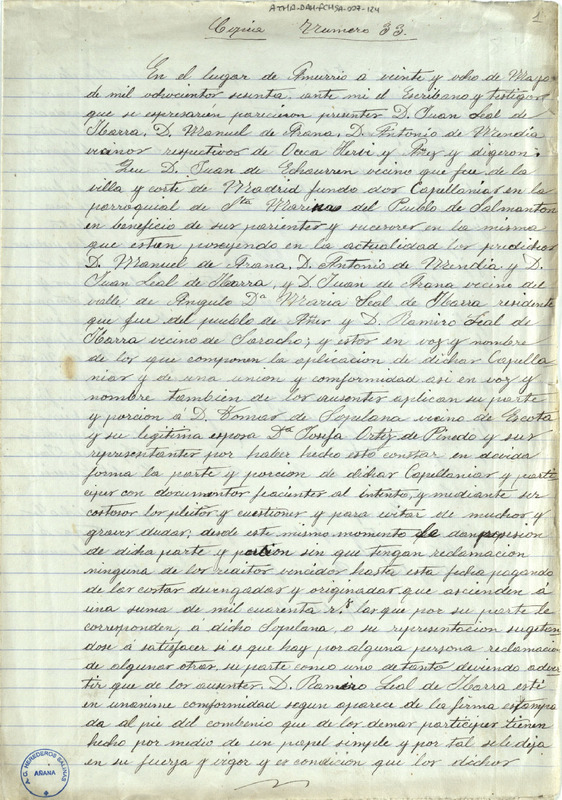 ATHA-DAH-FCHSA-027-124
1
Copia Numero 33.
En el lugar de Amurrio á veinte y ocho de Mayo
de mil ochocientos sesenta, ante mi el Escribano y testigos
que se espresaren parecieron presentes D. Juan Leal de
Ibarra, D. Manuel de Arana, D. Antonio de Mendia
vecinos respectivos de Oceca Hervi y Añes y digeron:
Que D. Juan de Echaurren vecino que fue de la
villa y corte de Madrid fundo dos Capellanias en la
parroquial de Sta Marina del Pueblo de Salmanton
en beneficio de sus parientes y sucesores en la misma
que estan poseyendo en la actualidad los predichos
D. Manuel de Arana, D. Antonio de Mendia y D.
Juan Leal de Ibarra, y D. Juan de Arana vecino del
valle de Angulo Da Maria Leal de Ibarra residente
que fue del pueblo de Añes y D. Ramiro Leal de
Ibarra vecino de Saracho; y estos en voz y nombre
de los que componen la aplicacion de dichas Capella
nias y de una union y comformidad asi en voz y
nombre tambien de los ausentes aplican su parte
y porcion á D. Tomas de Sopelana vecino de Escota
y su legitima esposa Da Josefa Ortiz de Pinedo y sus
representantes por haber hecho esto constar en devida
forma la parte y porcion de dichas Capellanias y parti
cipes con documentos facientes al intento, y mediante ser
costosos los pleitos y cuestiones y para evitar de muchos y
graves dudas; desde este mismo momento le dan posesion
de dicha parte y porcion sin que tengan reclamacion
ninguna de los reditos vencidos hasta esta fecha pagando
de las costas devengadas y originadas que ascienden á
una suma de mil cuarenta r.s las que por su parte le
corresponden, á dicho Sopelana, o su representacion sugetan
dose á satisfacer si es que hay por alguna persona reclamacion
de algunas otras, su parte como uno de tantos deviendo adver
tir que de los ausentes D. Ramiro Leal de Ibarra esti
en unanime comformidad segun aparece de la firma estampa
da al pie del combenio que de los demas participes tienen
hecho por medio de un papel simple y por tal se le deja
en su fuerza y vigor y es condicion que los dichos
A.G. HEREDEROS SALINAS
AÑANA